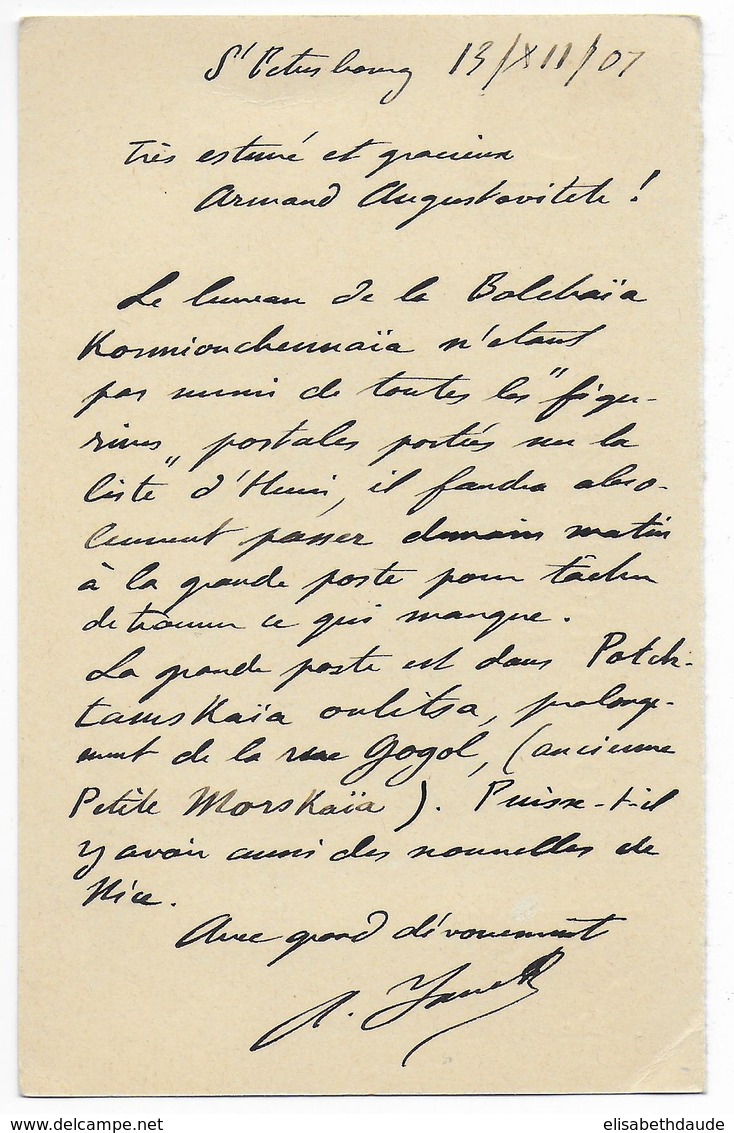 St Petersbourg 13/XII/07
Très estimé et gracieux
Armand Augustovitch !
Le bureau de la Bolchaïa
Konniouchennaïa n'étant
pas muni de toutes les "figu-
rines" postales portées sur la
liste d'Henri, il faudra abso-
lument passer demain matin
à la grande poste pour tâcher
de trouver ce qui manque.
La grande poste est dans Potch-
tamskaïa oulitsa, prolonge-
ment de la rue Gogol, (ancienne
Petite Morskaïa). Puisse-t-il
y avoir aussi des nouvelles de
Nice.
Avec grand dévouement
A.
delcampe.net
elisabethdaude